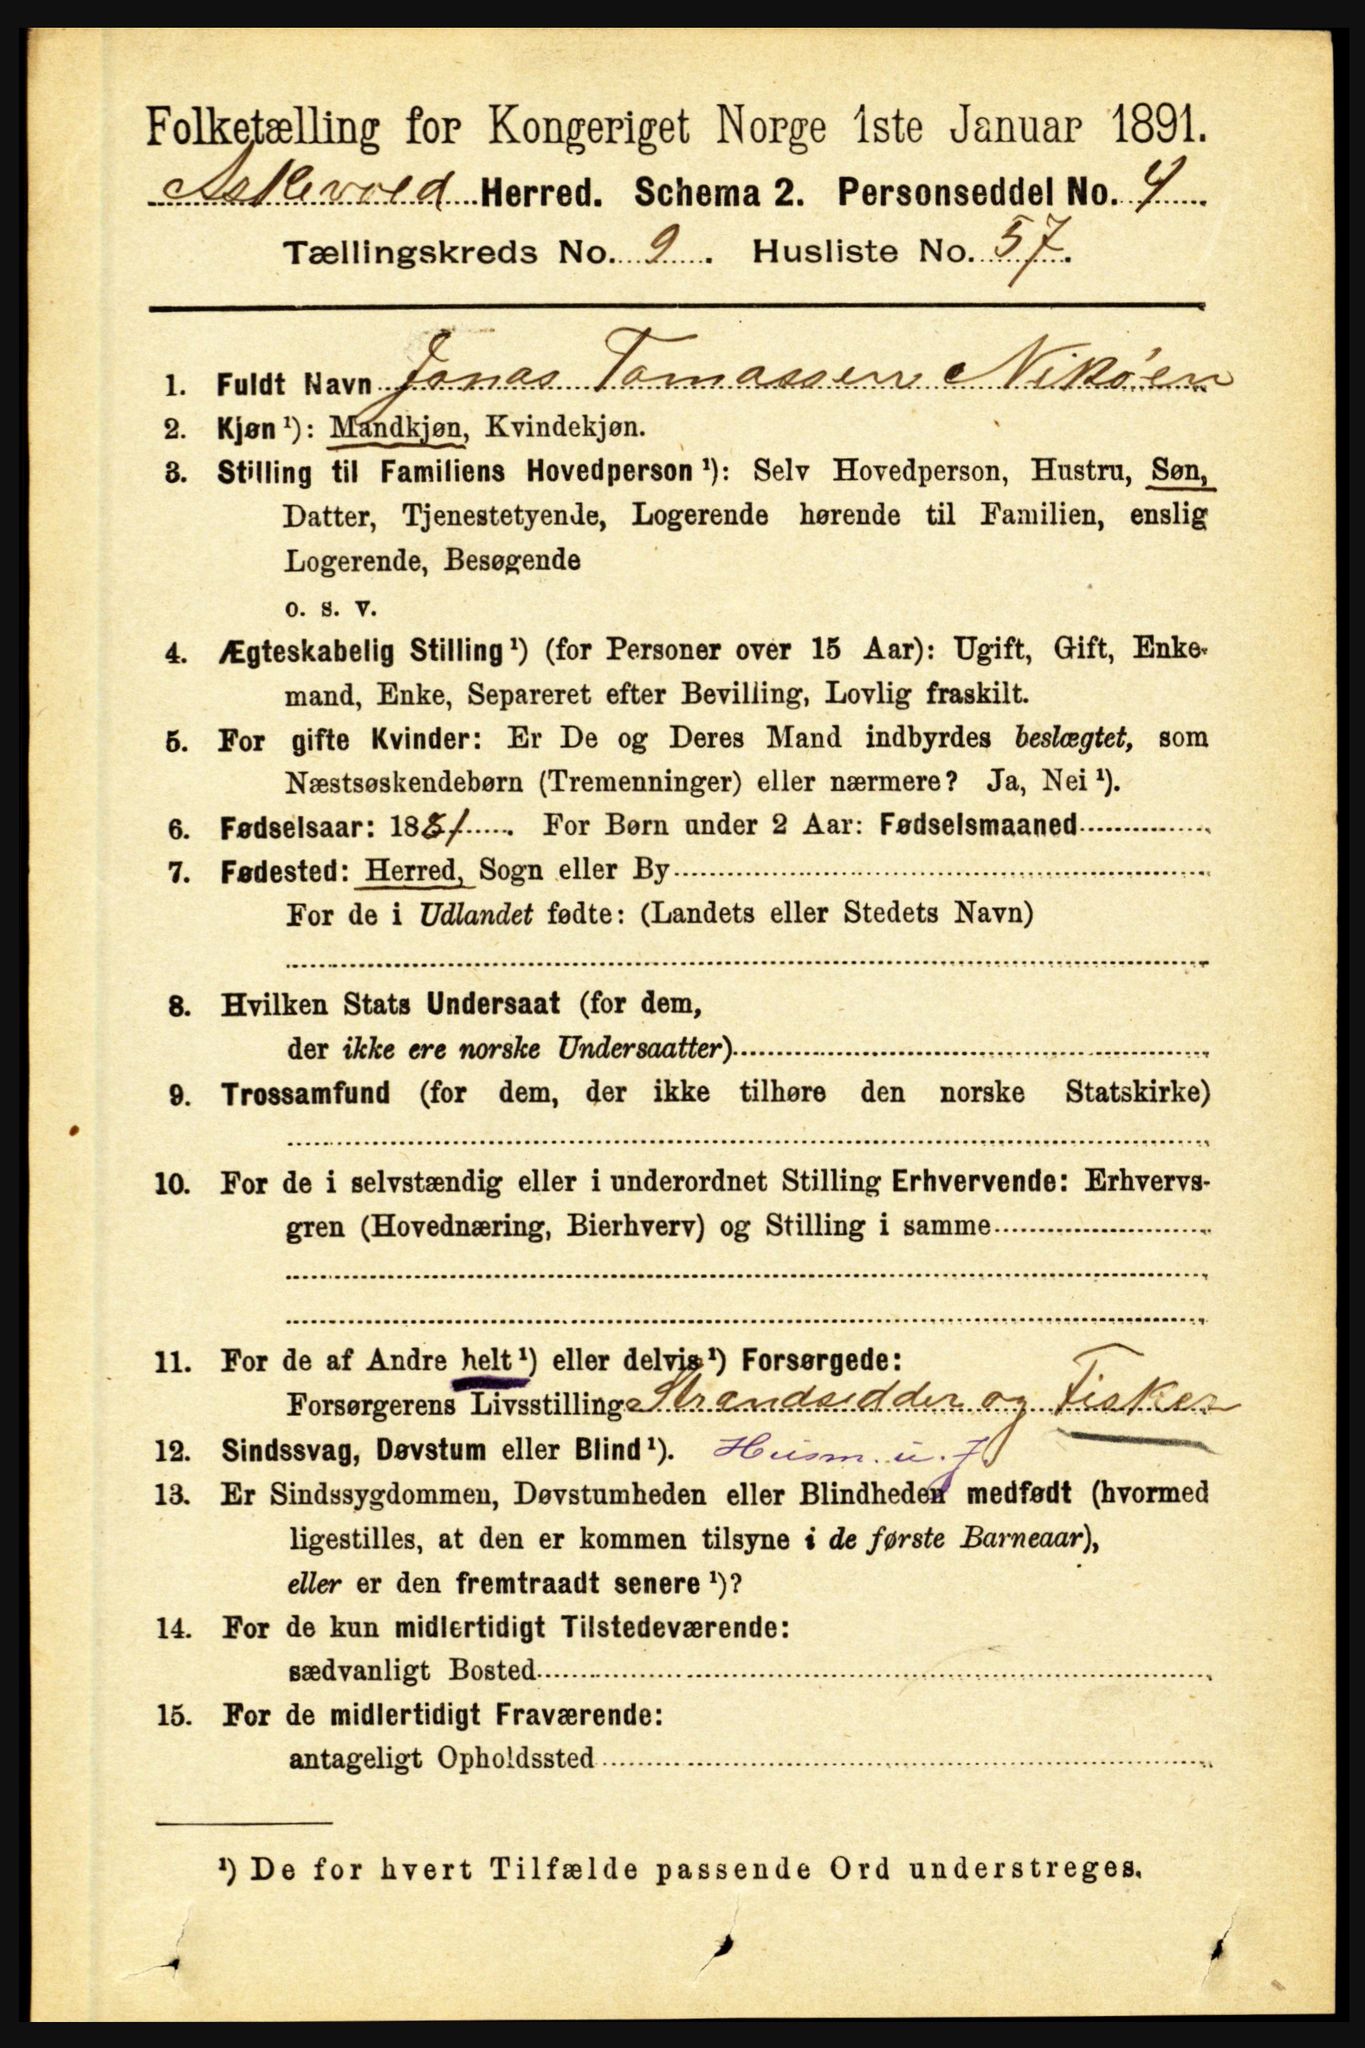 Folketælling for Kongeriget Norge 1ste Januar 1891.
Askevold Herred. Schema 2. Personseddel No. 4
Tællingskreds No. 9. Husliste No. 57.
1. Fuldt Navn Jonas Tomassen Nikøen
2. Kjøn¹): Mandkjøn, Kvindekjøn.
3. Stilling til Familiens Hovedperson¹): Selv Hovedperson, Hustru, Søn,
Datter, Tjenestetyende, Logerende hørende til Familien, enslig
Logerende, Besøgende
o. s. v.
4. Ægteskabelig Stilling¹) (for Personer over 15 Aar): Ugift, Gift, Enke-
mand, Enke, Separeret efter Bevilling, Lovlig fraskilt.
5. For gifte Kvinder: Er De og Deres Mand indbyrdes beslægtet, som
Næstsøskendebørn (Tremenninger) eller nærmere? Ja, Nei¹).
6. Fødselsaar: 1881. For Børn under 2 Aar: Fødselsmaaned
7. Fødested: Herred, Sogn eller By
For de i Udlandet fødte: (Landets eller Stedets Navn)
8. Hvilken Stats Undersaat (for dem,
der ikke ere norske Undersaatter)
9. Trossamfund (for dem, der ikke tilhøre den norske Statskirke)
10. For de i selvstændig eller i underordnet Stilling Erhvervende: Erhvervs-
gren (Hovednæring, Bierhverv) og Stilling i samme
11. For de af Andre helt¹) eller delvis¹) Forsørgede:
Forsørgerens Livsstilling Strandsidder og Fisker
12. Sindssvag, Døvstum eller Blind¹). Husm. u. J.
13. Er Sindssygdommen, Døvstumheden eller Blindheden medfødt (hvormed
ligestilles, at den er kommen tilsyne i de første Barneaar),
eller er den fremtraadt senere¹)?
14. For de kun midlertidigt Tilstedeværende:
sædvanligt Bosted
15. For de midlertidigt Fraværende:
antageligt Opholdssted
¹) De for hvert Tilfælde passende Ord understreges.